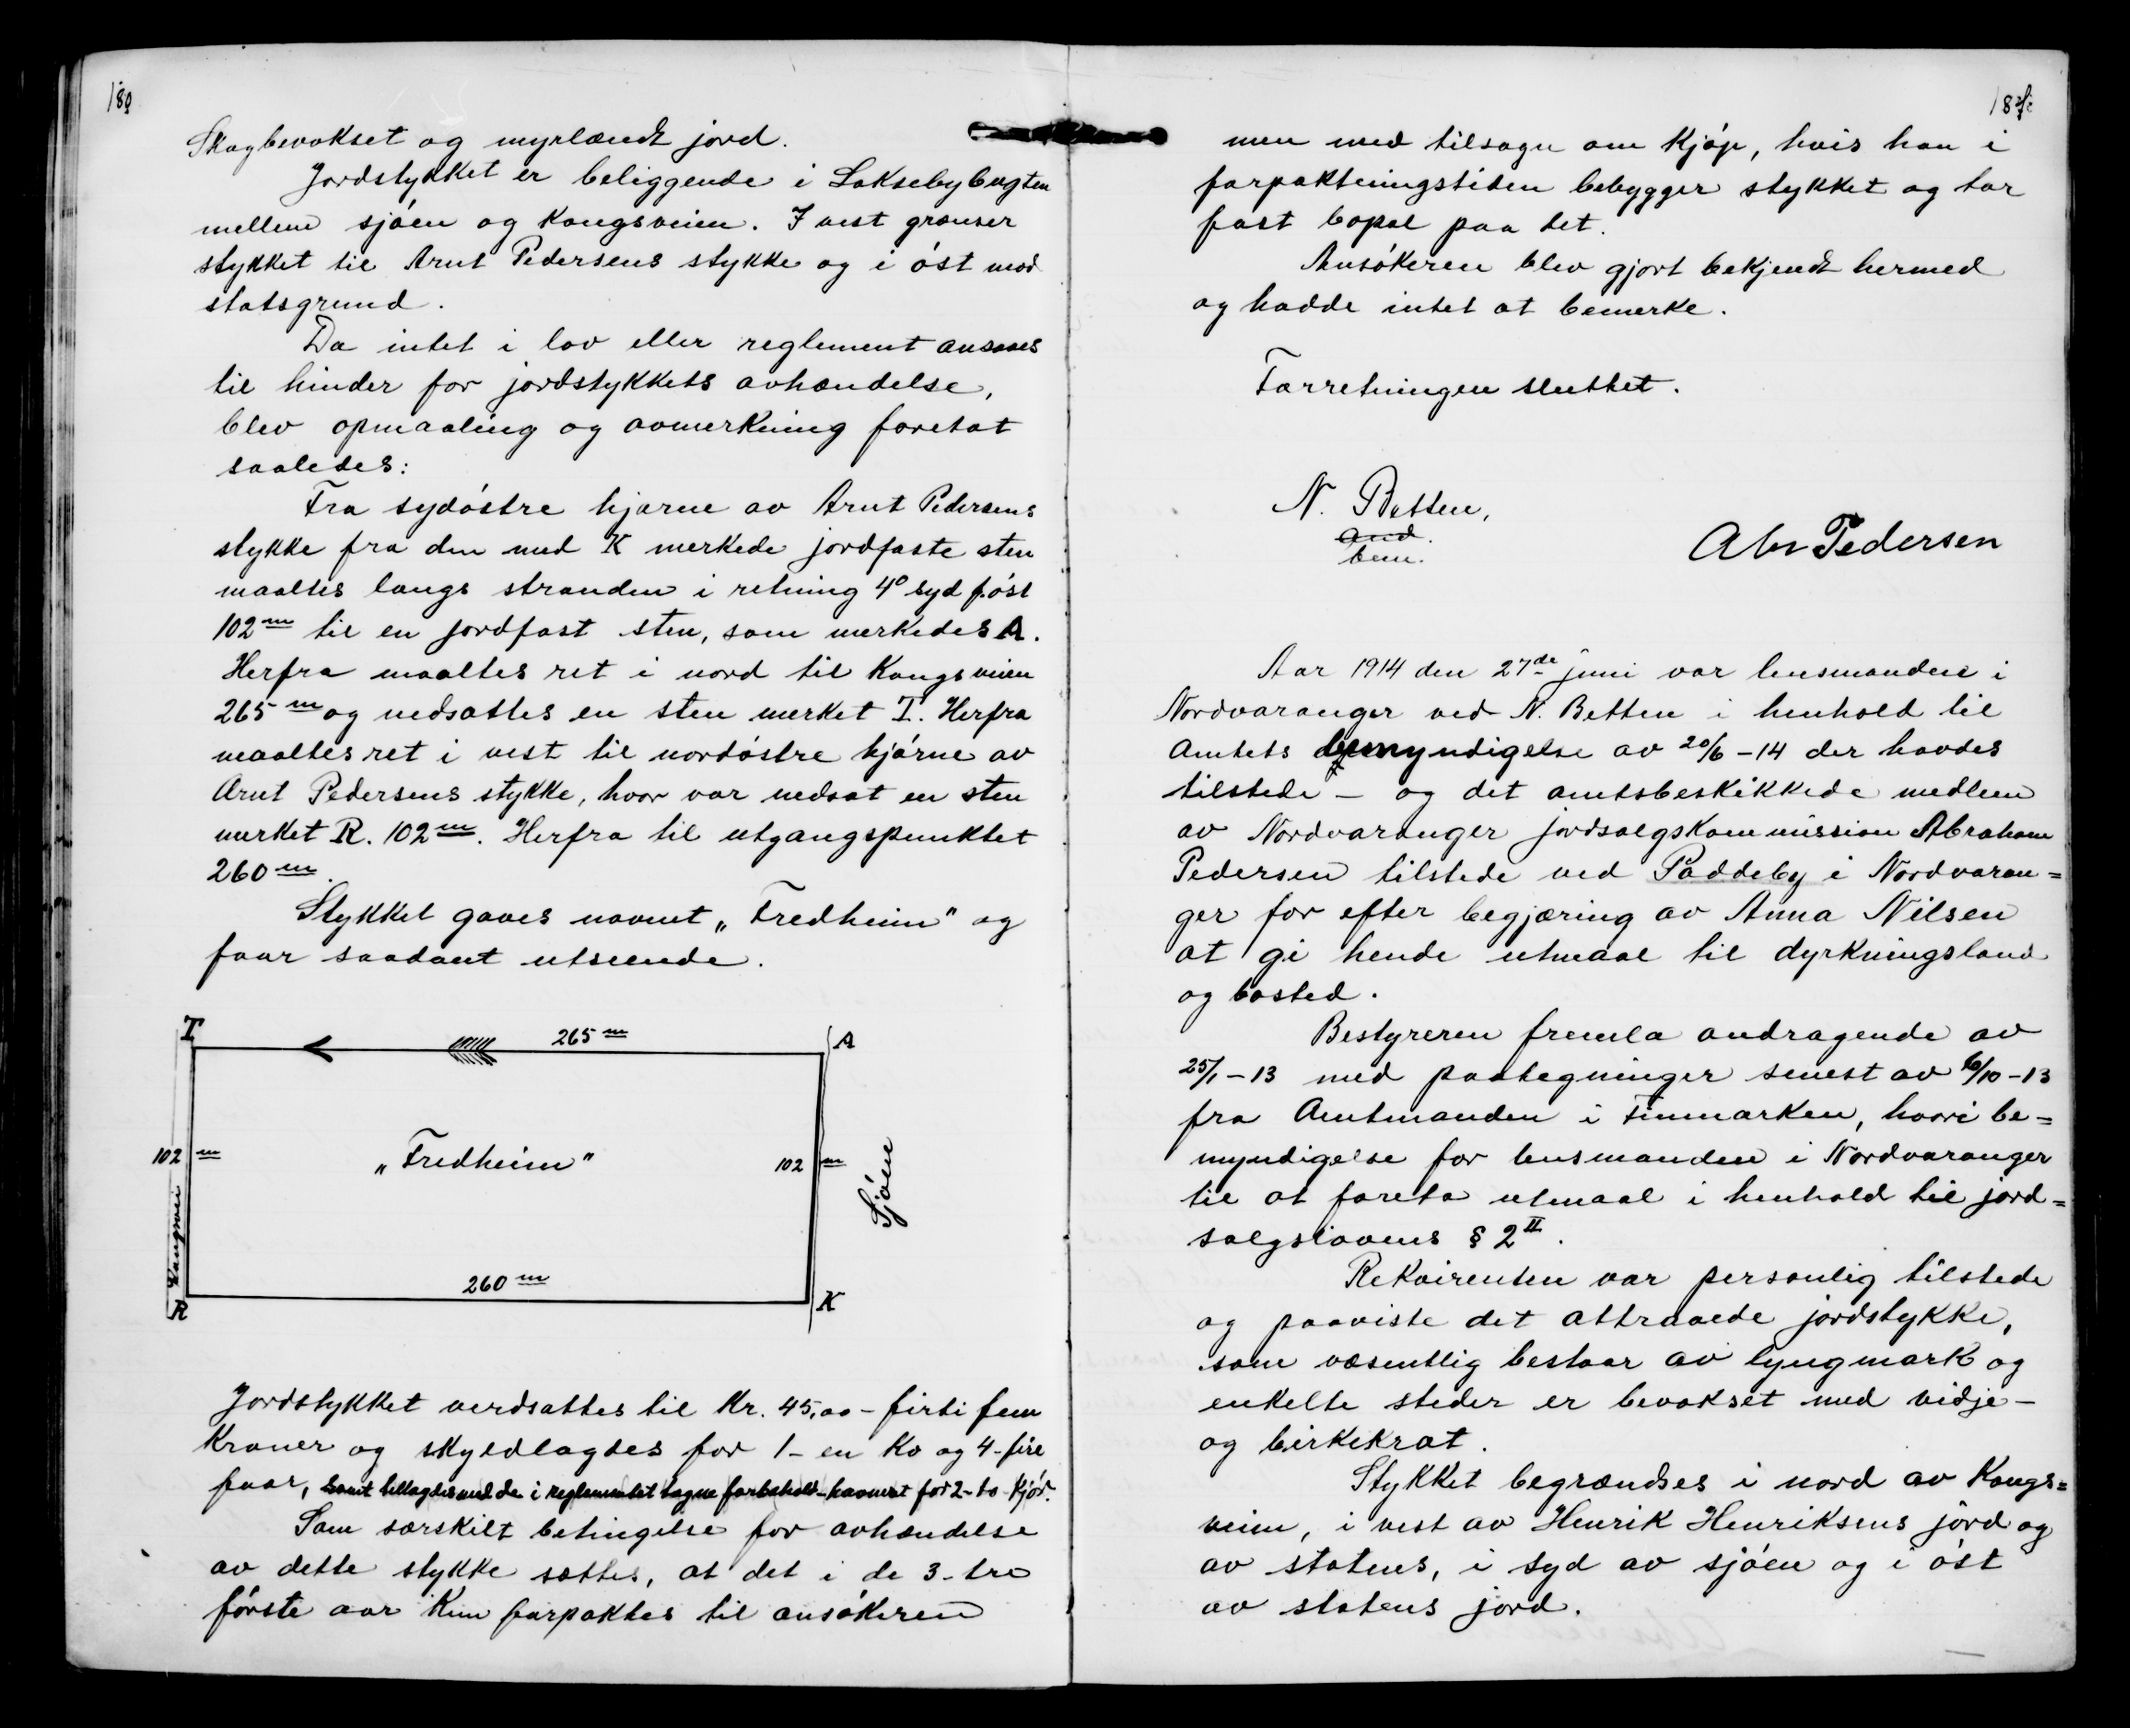 Skogbevokset og myrlændt jord.
Jordstykket er beliggende i Laksebybugten
mellem sjøen og Kongsveien. I vest grænser
stykket til Arnt Pedersens stykke og i øst mod
statsgrund.
Da intet i lov eller reglement ansaaes
til hinder for jordstykkets avhændelse,
blev opmaaling og avmerkning foretat
saaledes:
Fra sydøstre hjørne av Arnt Pedersens
stykke fra den med K merkede jordfaste sten
maaltes langs stranden i retning 4° syd f. øst
102 m til en jordfast sten, som merkedes A.
Herfra maaltes ret i nord til Kongsveien
265 m og nedsattes en sten merket T. Herfra
maaltes ret i vest til nordøstre hjørne av
Arnt Pedersens stykke, hvor var nedsat en sten
merket R. 102 m. Herfra til utgangspunktet
260 m.
Stykket gaves navnet „Fredheim" og
faar saadant utseende.
T
265 m
A
102 m
„Fredheim"
102 m
Sjøen
Kongsvei
260 m
R
K
Jordstykket verdsattes til Kr. 45,00 - firti fem
Kroner og skyldlagdes for 1 - en Ko og 4 - fire
faar, samt billagdes med de i reglementet tagne forbehold - havnret for 2 - to - Kjør.
Som særskilt betingelse for avhændelse
av dette stykke sættes, at det i de 3 - tre
første aar Kun forpaktes til ansøkeren
men med tilsagn om Kjøp, hvis han i
forpaktningstiden bebygger stykket og tar
fast bopæl paa det.
Ansøkeren blev gjort bekjendt hermed
og hadde intet at bemerke.
Forretningen sluttet.
N. Betten,
bem.
Abr Pedersen
Aar 1914 den 27de juni var lensmanden i
Nordvaranger ved N. Betten i henhold til
Amtets bemyndigelse av 20/6 - 14 der havdes
tilstede - og det amtsbeskikkede medlem
av Nordvaranger jordsalgskommission Abraham
Pedersen tilstede ved Paddeby i Nordvaran=
ger for efter begjæring av Anna Nilsen
at gi hende utmaal til dyrkningsland
og bosted.
Bestyreren fremla andragende av
25/1 - 13 med paategninger senest av 6/10 - 13
fra Amtmanden i Finmarken, hvori be=
myndigelse for lensmanden i Nordvaranger
til at foreta utmaal i henhold til jord=
salgslovens § 2 II.
Rekvirenten var personlig tilstede
og paaviste det attraaede jordstykke,
som væsentlig bestaar av lyngmark og
enkelte steder er bevokset med vidje -
og birkekrat.
Stykket begrændses i nord av Kongs=
veien, i vest av Henrik Henriksens jord og
av statens, i syd av sjøen og i øst
av statens jord.